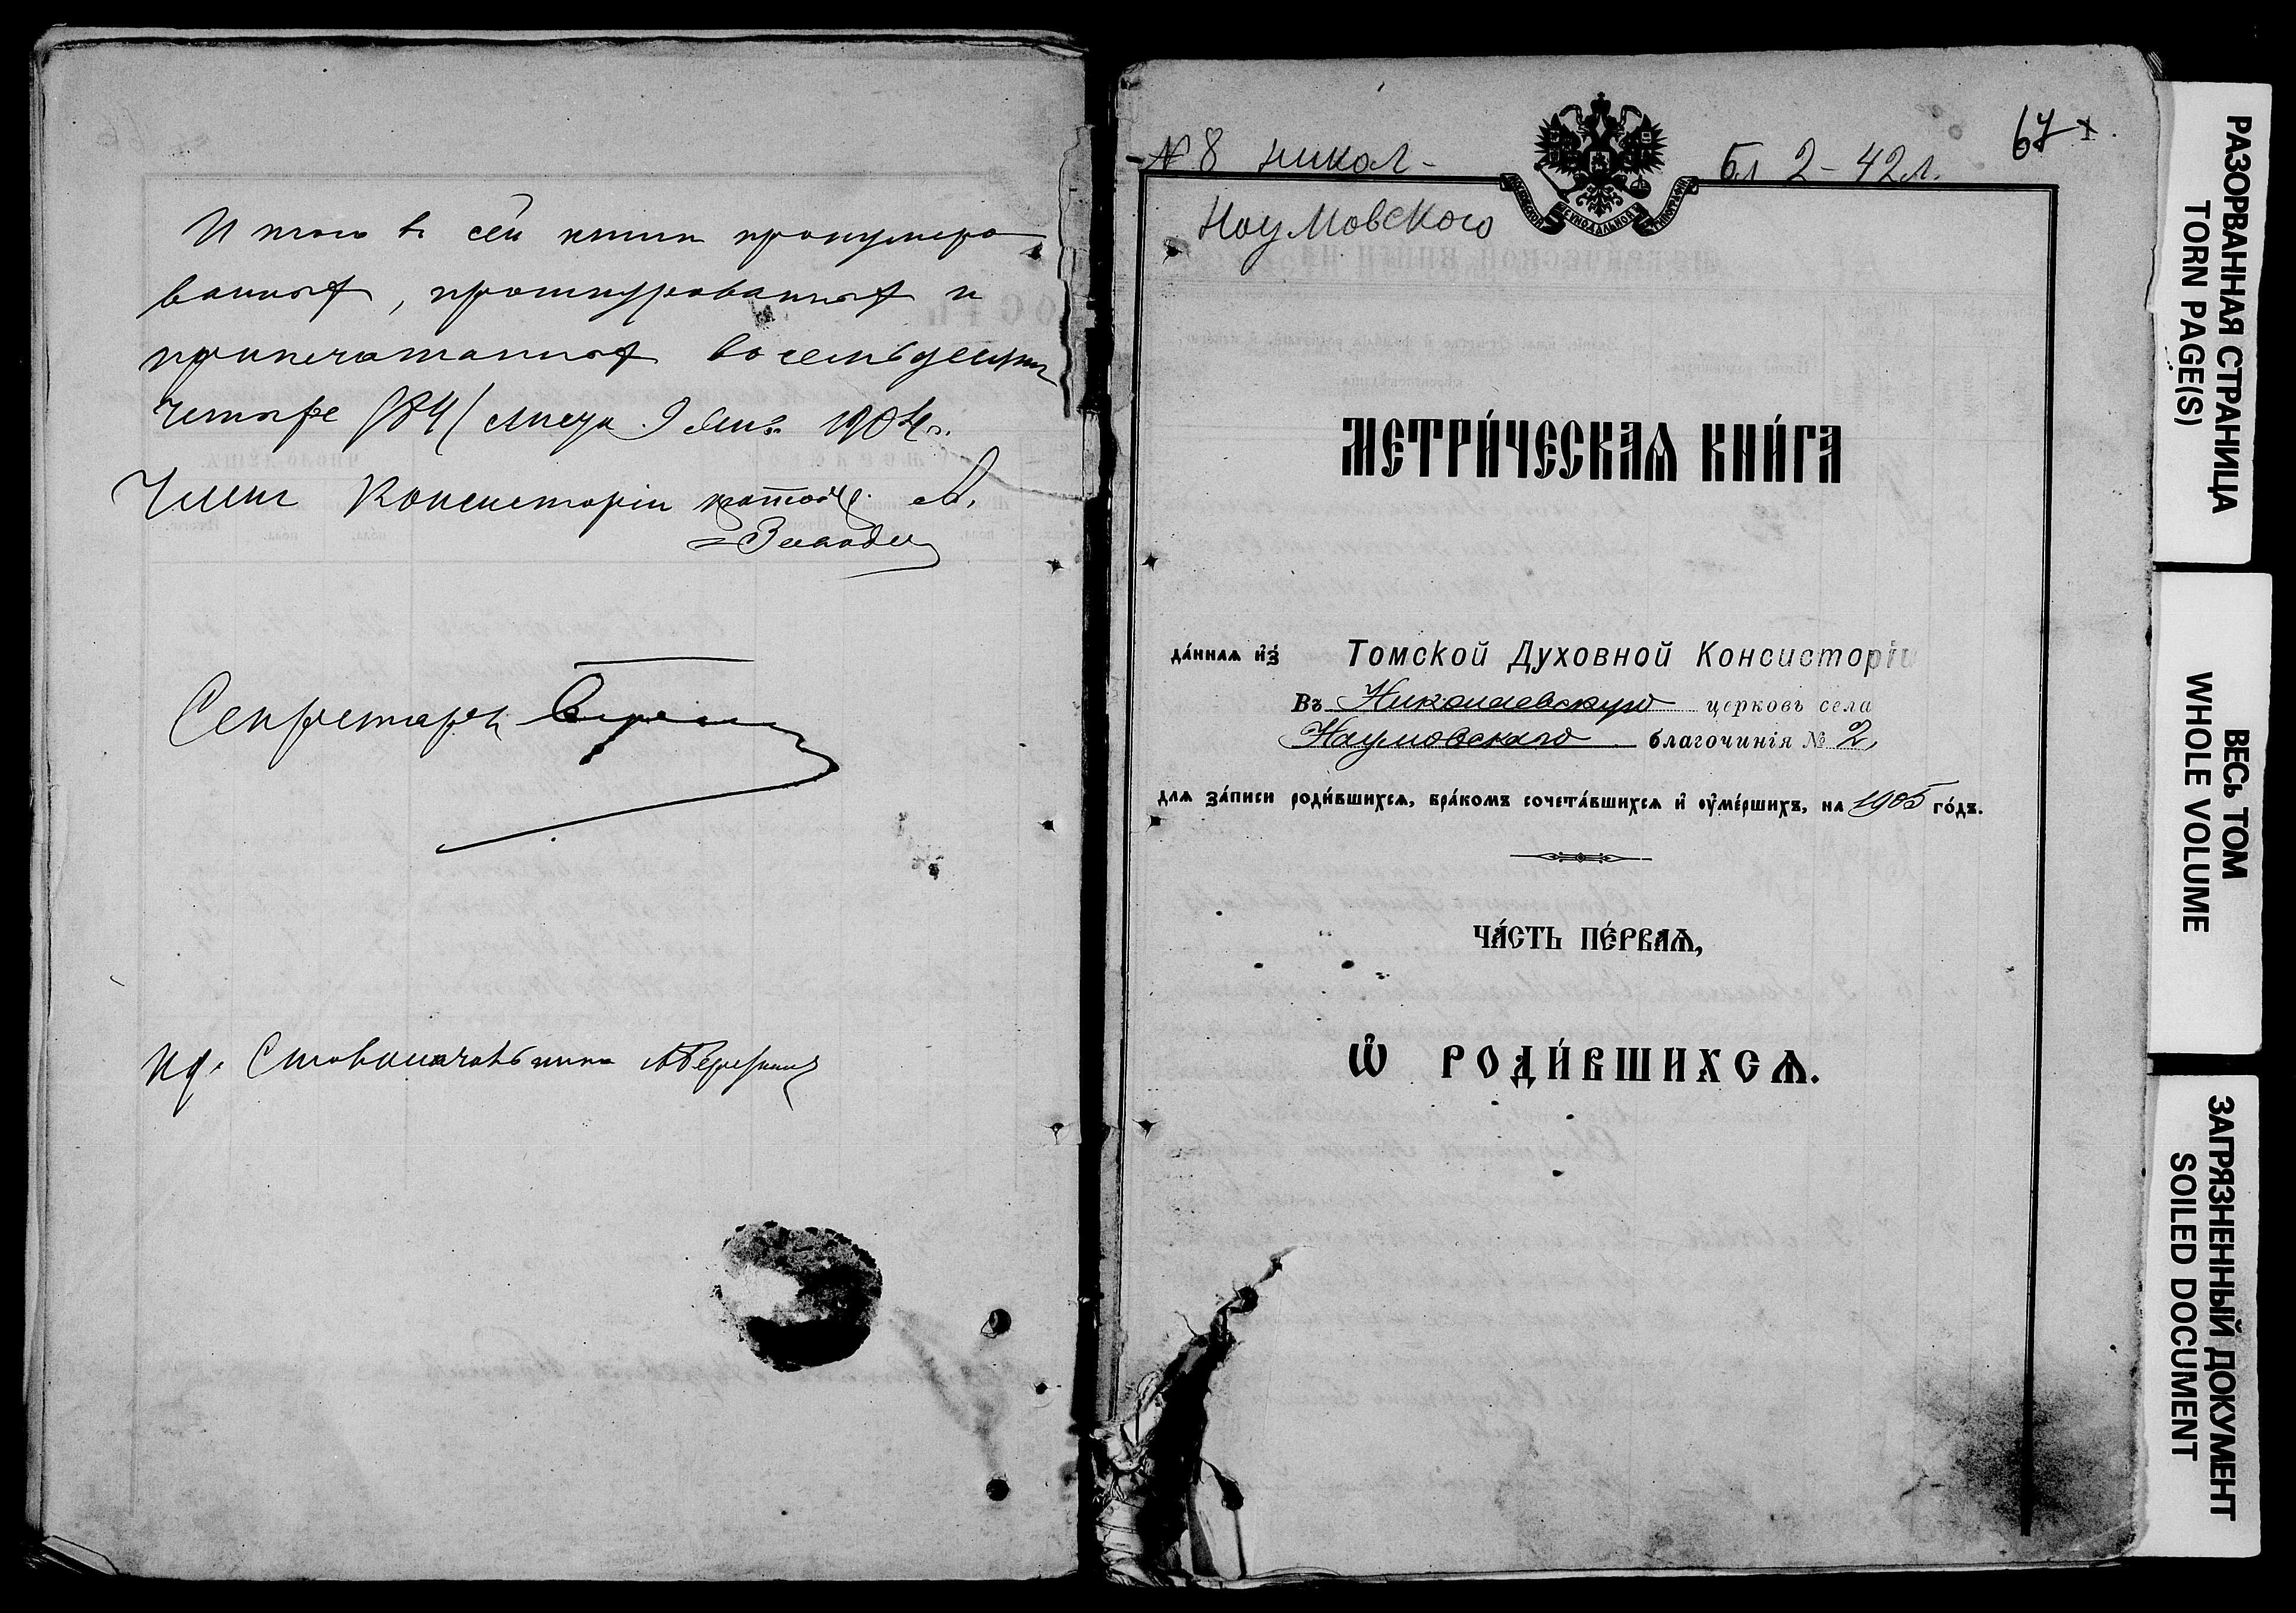 Итого въ сей книгѣ пронумеро
ванныхъ, прошнурованныхъ и
припечатанныхъ восемьдесятъ
четыре /84/ листа
Членъ Консисторіи
Секретарь
И. д. Столоначальника
№ 8 Никол-
Бл 2-42 л.
67
Наумовского
МОСКОВСКОЙ СѴНОДАЛЬНОЙ ТИПОГРАФІИ
МЕТРИ́ЧЕСКАѦ КНИ́ГА
да́ннаѧ и҆з̾ Томской Духовной Консисторіи
Въ Николаевскую церковь села
Наумовскаго благочинія № 2,
длѧ за́писи роди́вшихсѧ, бра́комъ сочета́вшихсѧ и҆ ᲂу҆ме́ршихъ, на 1905 го́дъ.
ЧА́СТЬ ПЕ́РВАѦ,
Ѡ҆ РОДИ́ВШИХСѦ.
РАЗОРВАННАЯ СТРАНИЦА
TORN PAGE(S)
ВЕСЬ ТОМ
WHOLE VOLUME
ЗАГРЯЗНЕННЫЙ ДОКУМЕНТ
SOILED DOCUMENT